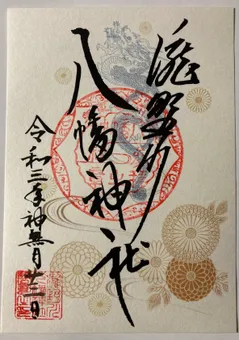 瀧野川
八幡神社
令和三年神無月廿二日